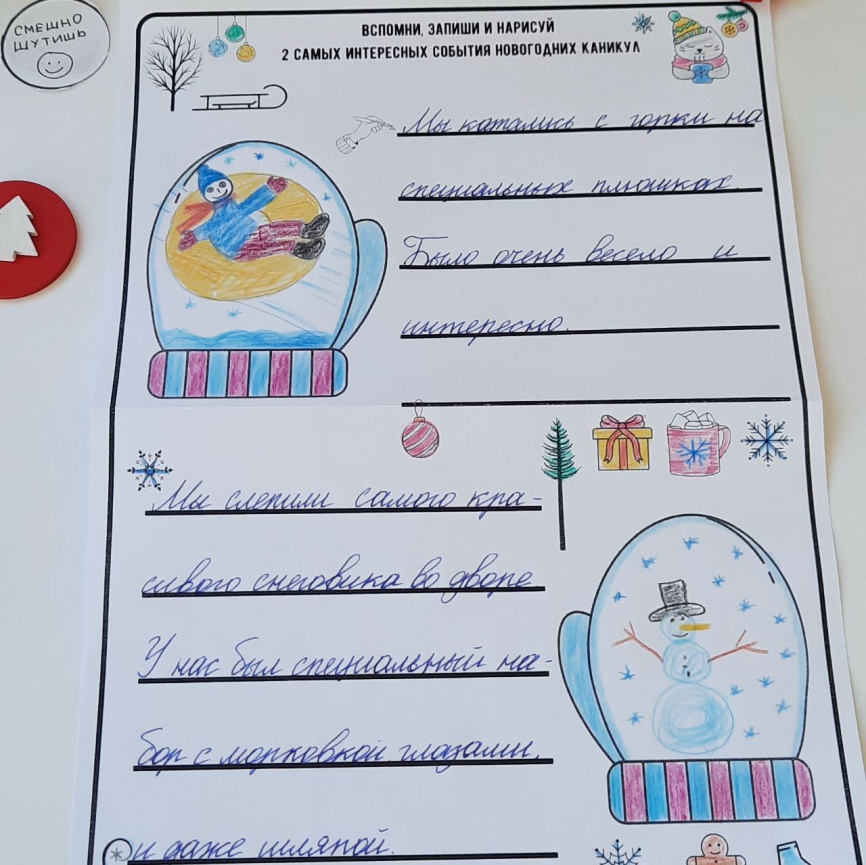 СМЕШНО
ШУТИШЬ
ВСПОМНИ, ЗАПИШИ И НАРИСУЙ
2 САМЫХ ИНТЕРЕСНЫХ СОБЫТИЯ НОВОГОДНИХ КАНИКУЛ
Мы катались с горки на
специальных плюшках.
Было очень весело и
интересно.
Мы слепили самого кра-
сивого снеговика во дворе
У нас был специальный на-
бор с морковкой глазами,
и даже шляпой.